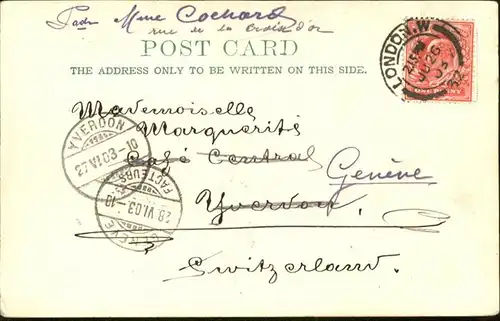 Mme Cochard
rue de la Croix d'or
POST CARD
THE ADDRESS ONLY TO BE WRITTEN ON THIS SIDE.
LONDON.W
7.15 PM
JU 26
03
32
ONE PENNY
Mademoiselle
Marguerite
Café Central
Genève
Yverdon
Switzerland.
YVERDON
27.VI.03-10
FACTEURS
28.VI.03.-10
GENÈVE